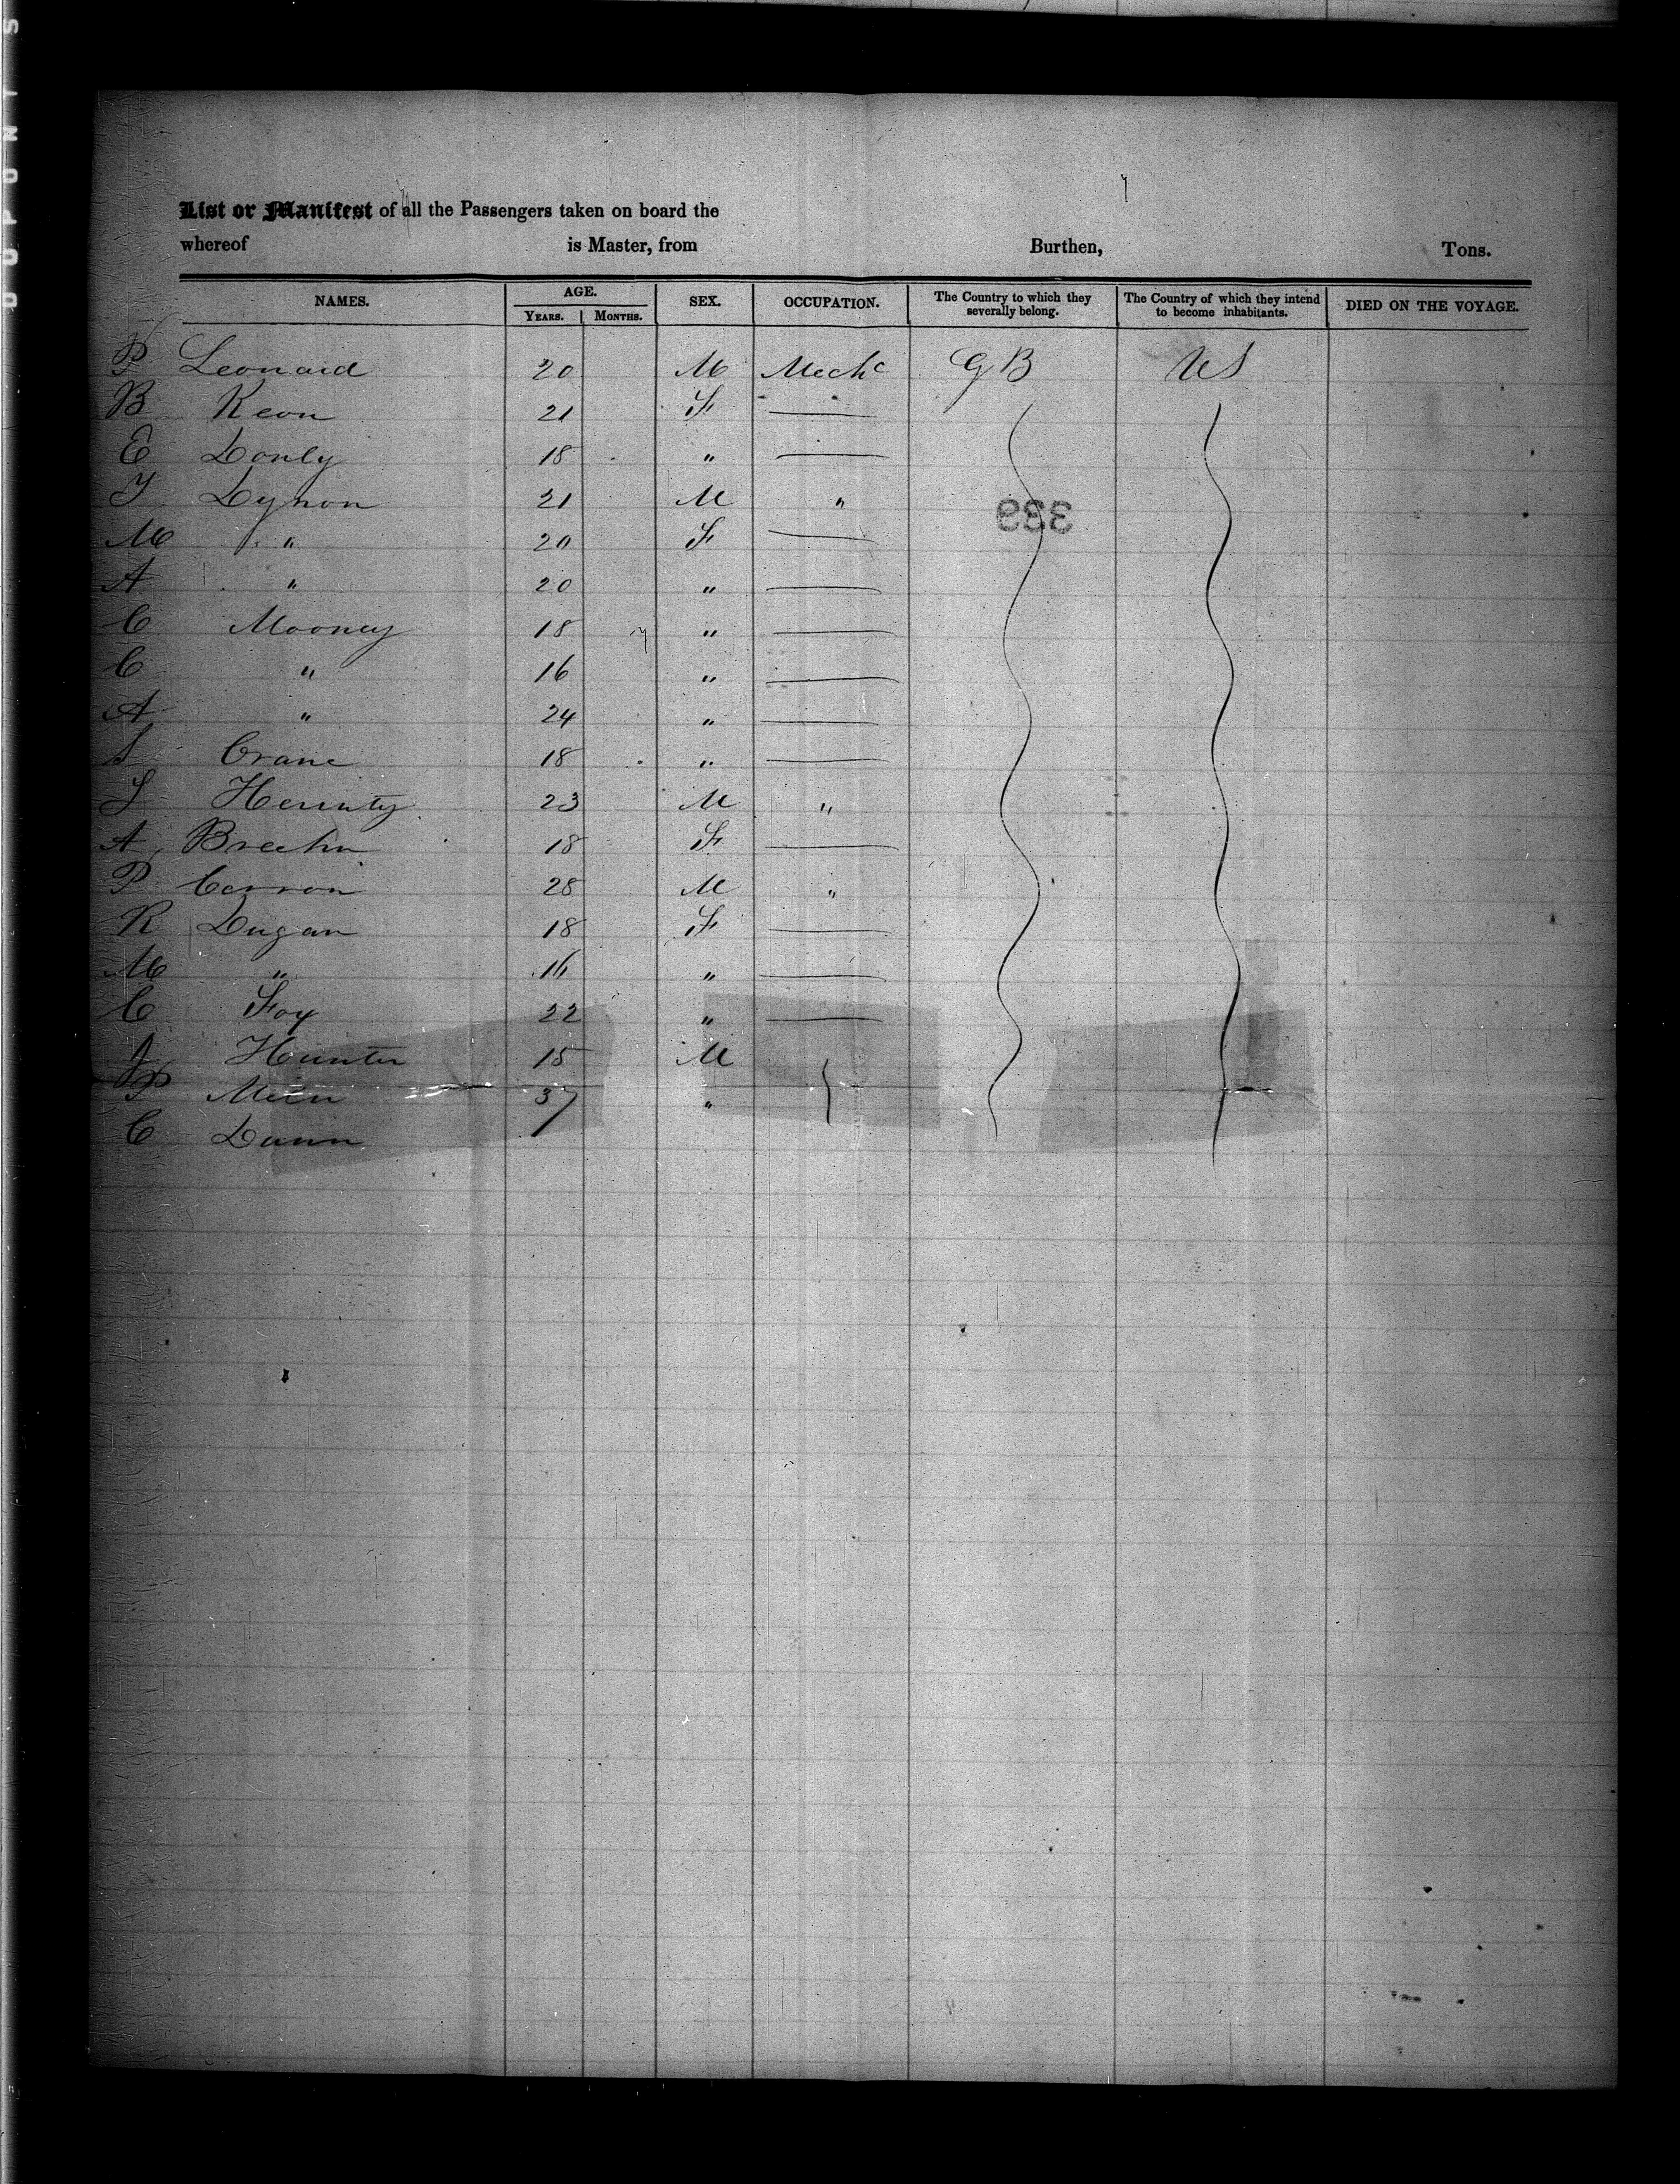 List or Manifest of all the Passengers taken on board the
whereof is Master, from Burthen, Tons.
NAMES. AGE. YEARS. MONTHS. SEX. OCCUPATION. The Country to which they severally belong. The Country of which they intend to become inhabitants. DIED ON THE VOYAGE.
P Leonard 20 M Mechc G B U S
B Keon 21 F —
E Donly 18 " —
T Dynon 21 M "
339
M " 20 F —
A " 20 " —
C Mooney 18 " —
C " 16 " —
A " 24 " —
S Crane 18 " —
23 M "
A 18 F —
P Carron 28 M "
R Dugan 18 F —
M " 16 " —
C Foy 22 " —
J Hunter 15 M
P 37 "
C Dunn